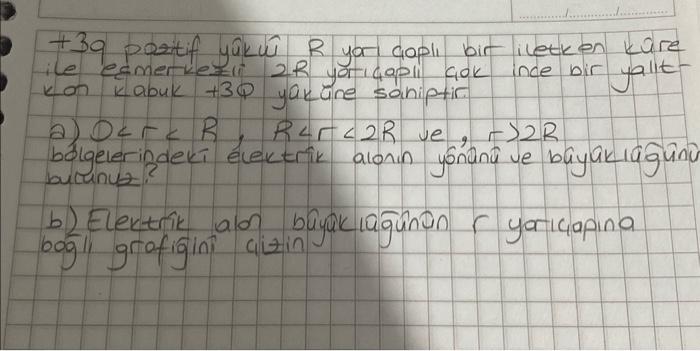 +3q pozitif yüklü R yarı çaplı bir iletken küre
ile eşmerkezli 2R yarıçaplı çok ince bir yalıt-
kan kabuk +3Q yüküne sahiptir.
a) 0<r<R, R<r<2R ve, r>2R
bölgelerindeki elektrik alanın yönünü ve büyüklüğünü
bulunuz?
b) Elektrik alan büyüklüğünün r yarıçapına
bağlı grafiğini çizin